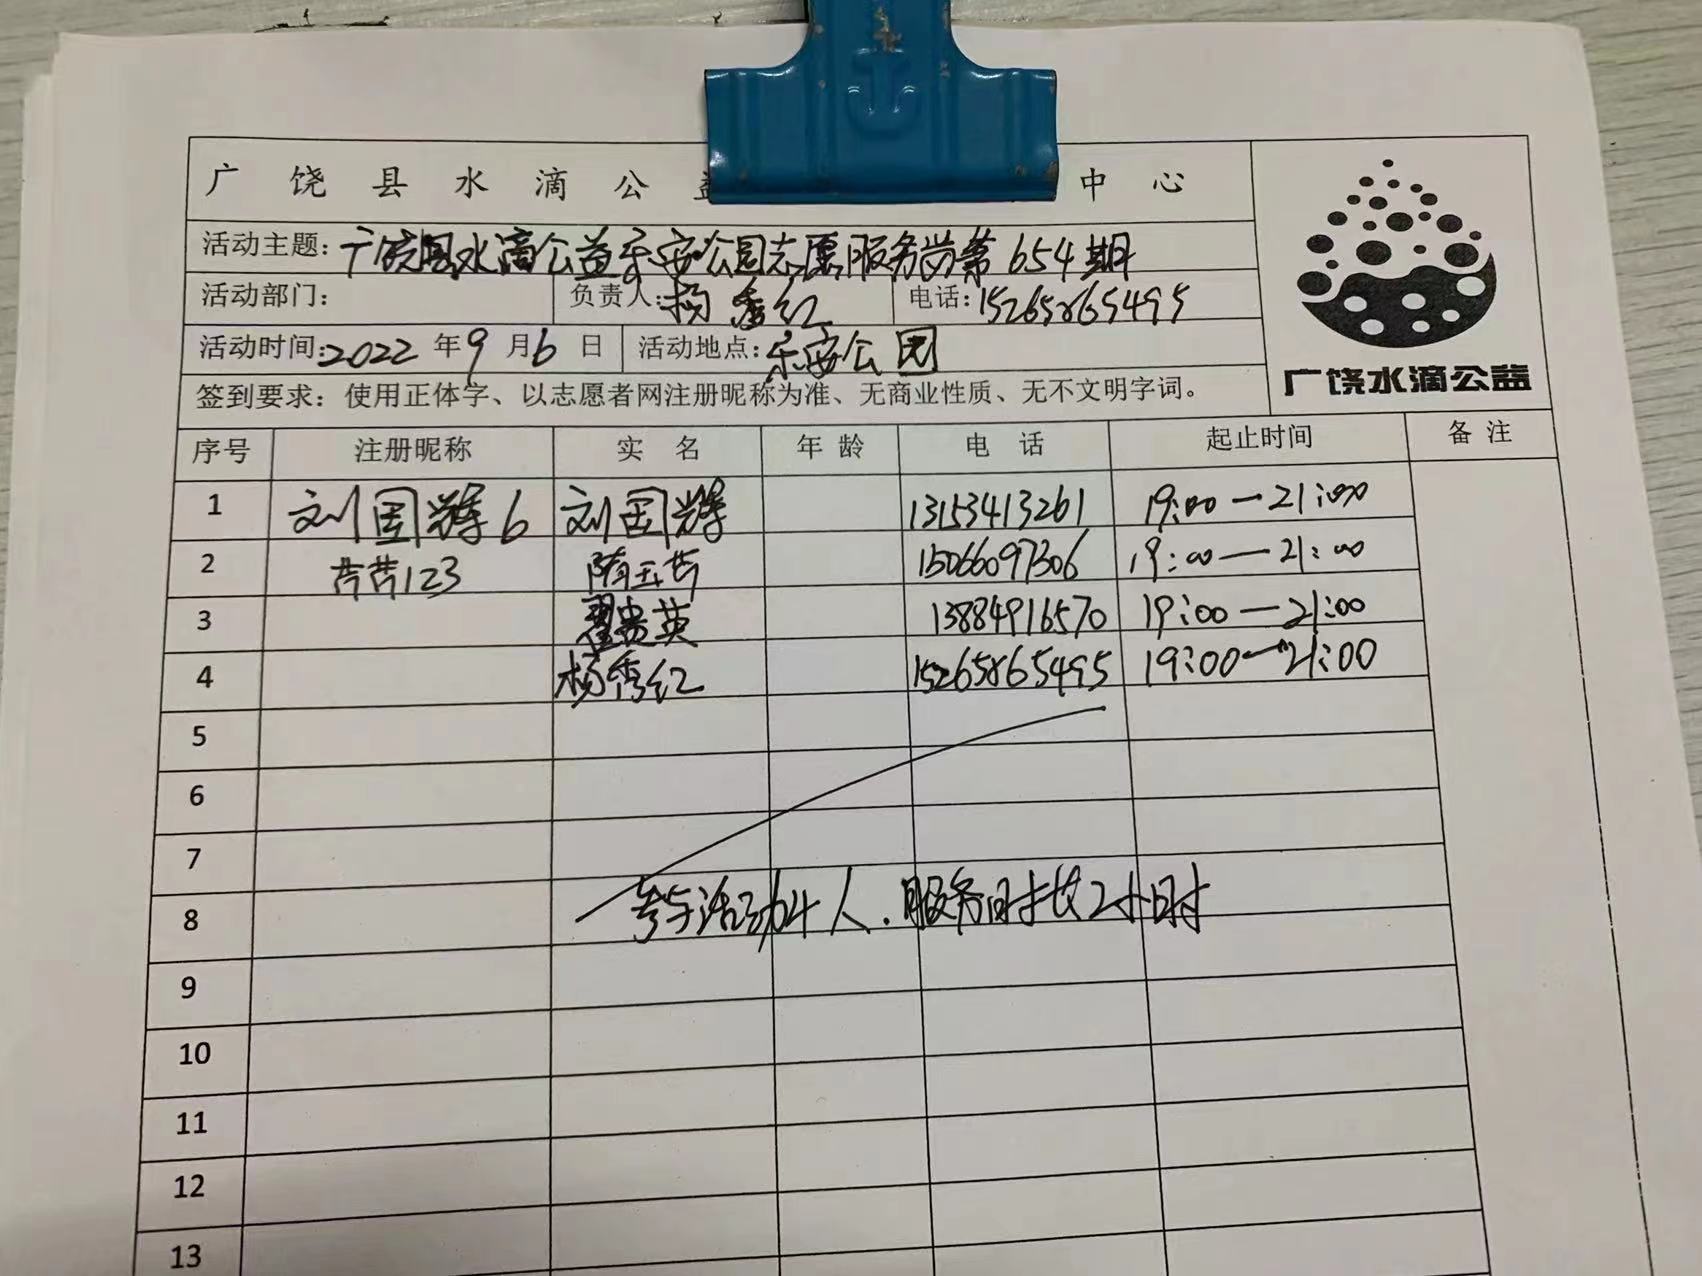 广饶县水滴公益 中心
活动主题:广饶县水滴公益乐安公园志愿服务岗第654期
活动部门: 负责人:杨秀红 电话:15265865495
活动时间:2022年9月6日 活动地点:乐安公园
签到要求:使用正体字、以志愿者网注册昵称为准、无商业性质、无不文明字词。
广饶水滴公益
序号 注册昵称 实名 年龄 电话 起止时间 备注
1 刘国辉6 刘国辉 13153413261 19:00—21:00
2 芸芸123 隋玉芸 15066097306 19:00—21:00
3 翟贵英 13884916570 19:00—21:00
4 杨秀红 15265865495 19:00—21:00
5
6
7
8 参与活动4人.服务时长2小时
9
10
11
12
13